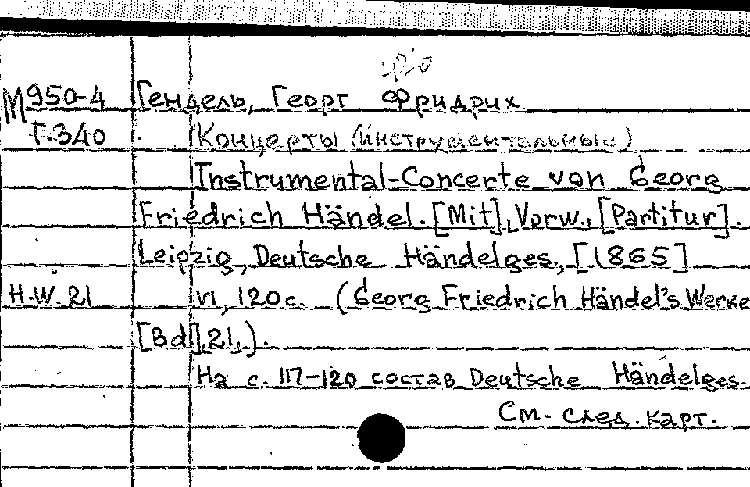 М950-4 Гендель, Георг Фридрих
Г.340 Концерты (инструментальные)
Instrumental-Concerte von Georg
Friedrich Händel. [Mit], Vorw., [Partitur].
Leipzig, Deutsche Händelges., [1865]
H.W. 21 VI, 120 с. (Georg Friedrich Händel's Werke
[Bd], 21,).
На с. 117-120 состав Deutsche Händelges.
См. след. карт.